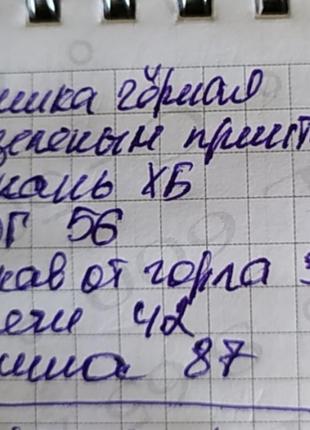 шка чёрная
зеленым принт
кань ХБ
ОГ 56
кав от горла 3
ечи 42
ина 87